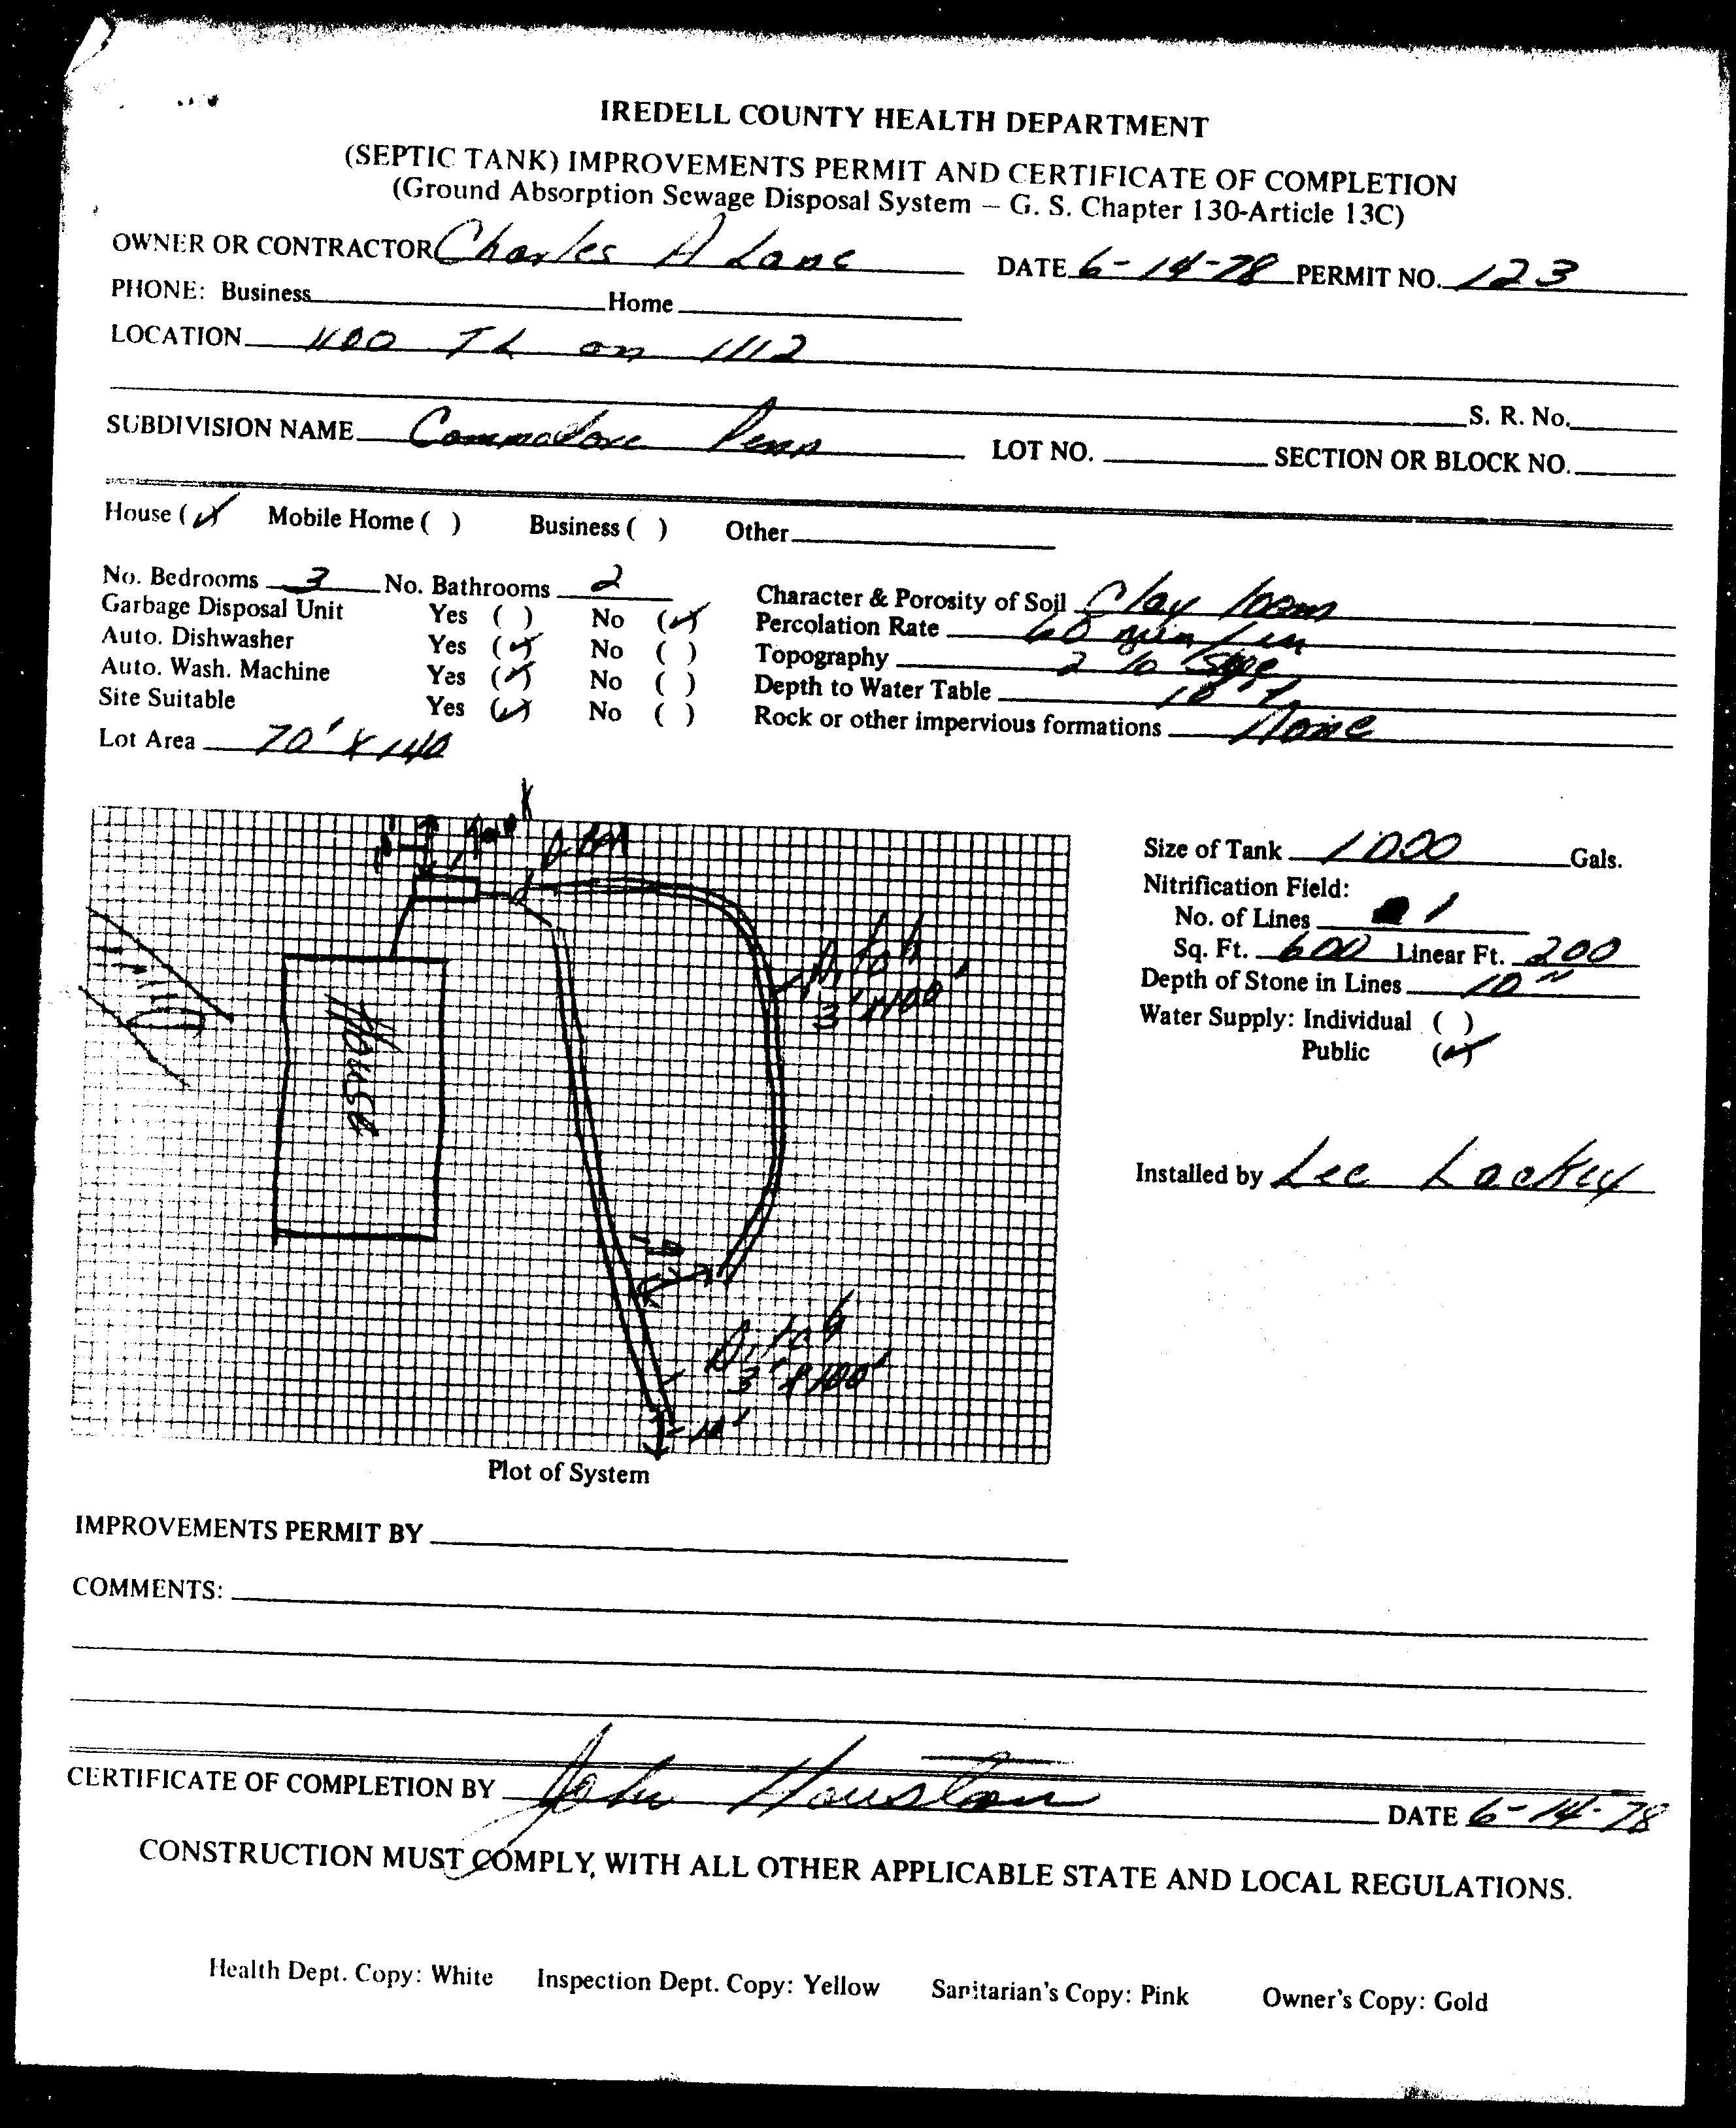 IREDELL COUNTY HEALTH DEPARTMENT
(SEPTIC TANK) IMPROVEMENTS PERMIT AND CERTIFICATE OF COMPLETION
(Ground Absorption Sewage Disposal System — G. S. Chapter 130-Article 13C)
OWNER OR CONTRACTOR Charles A Lane DATE 6-14-78 PERMIT NO. 123
PHONE: Business Home
LOCATION 1100 TL on 1112
S. R. No.
SUBDIVISION NAME Commodore Penn LOT NO. SECTION OR BLOCK NO.
House (✓) Mobile Home ( ) Business ( ) Other
No. Bedrooms 3 No. Bathrooms 2
Garbage Disposal Unit Yes ( ) No (✓)
Auto. Dishwasher Yes (✓) No ( )
Auto. Wash. Machine Yes (✓) No ( )
Site Suitable Yes (✓) No ( )
Lot Area 70' x 140
Character & Porosity of Soil Clay loam
Percolation Rate 60 min / in
Topography 2 %
Depth to Water Table 10'
Rock or other impervious formations None
House
Ditch
3' x 100'
Ditch
3' x 100'
10'
Plot of System
Size of Tank 1000 Gals.
Nitrification Field:
No. of Lines 1
Sq. Ft. 600 Linear Ft. 200
Depth of Stone in Lines 10"
Water Supply: Individual ( )
Public (✓)
Installed by Lee Lackey
IMPROVEMENTS PERMIT BY
COMMENTS:
CERTIFICATE OF COMPLETION BY John Houston DATE 6-14-78
CONSTRUCTION MUST COMPLY, WITH ALL OTHER APPLICABLE STATE AND LOCAL REGULATIONS.
Health Dept. Copy: White Inspection Dept. Copy: Yellow Sanitarian's Copy: Pink Owner's Copy: Gold